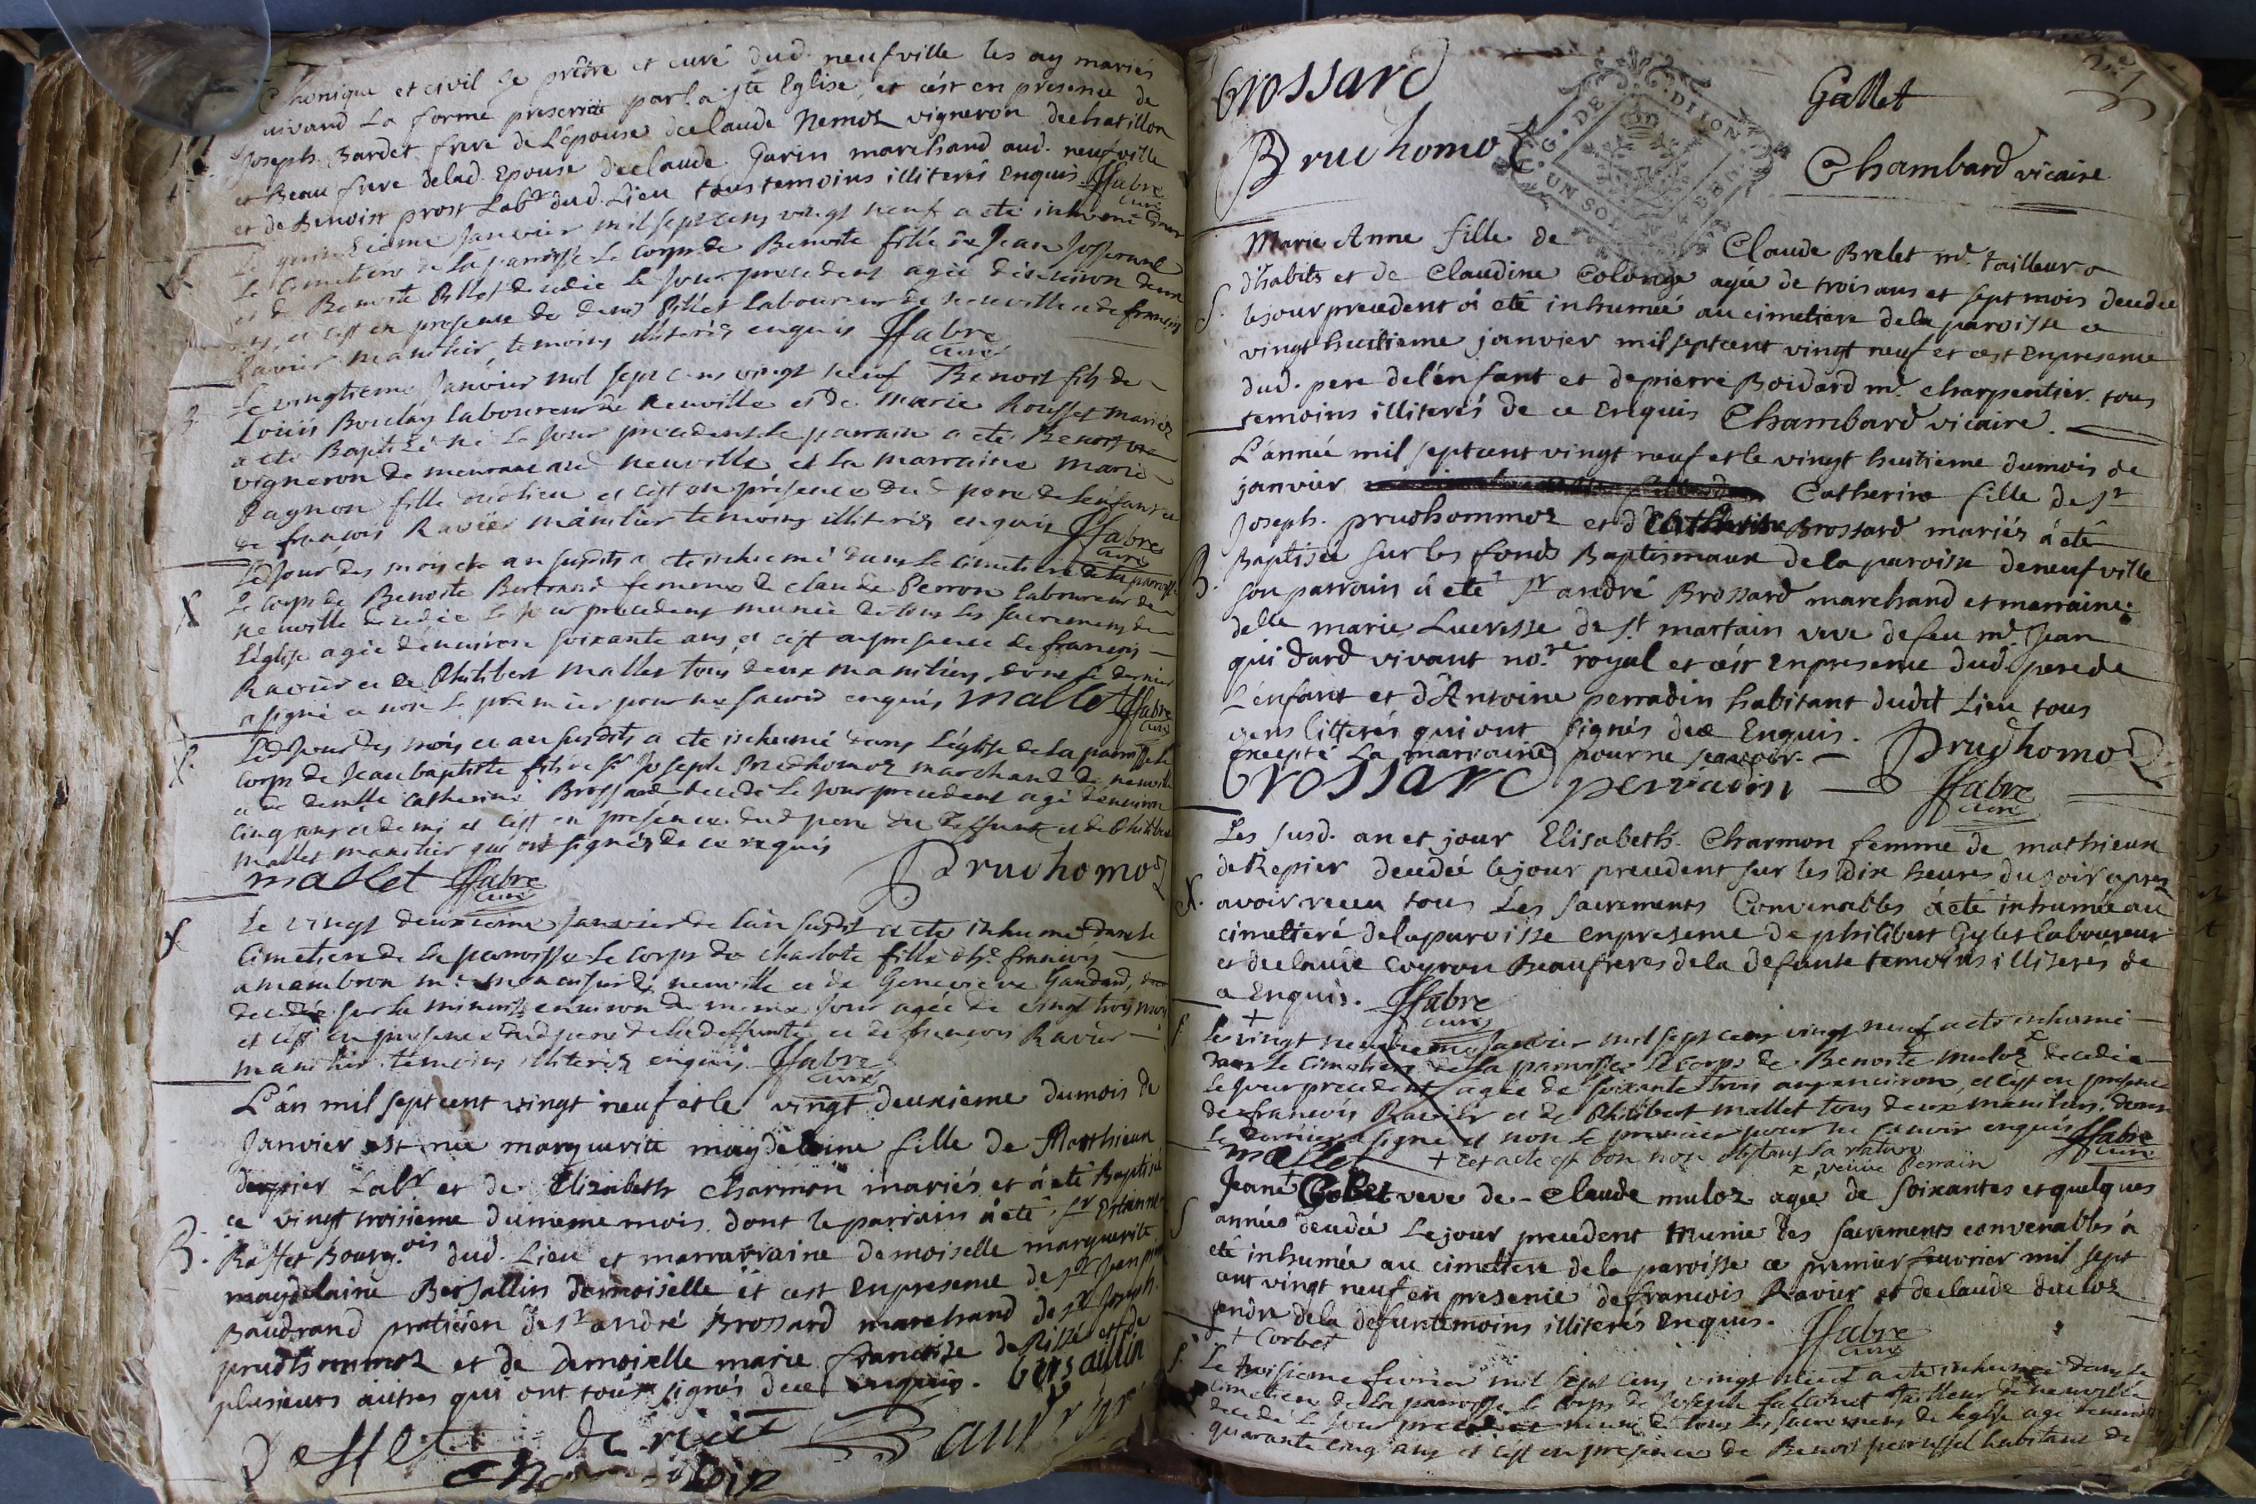 Chonique et civil Je prêtre et curé dud. neufville les ay mariés
suivand La forme prescritte par la Ste Eglise, et c'est en presence de
Joseph Bardet frere de L'épouse de Claude Nemoz vigneron de chatillon
et Beau frere delad. Epouse de claude Garin marchand aud. neufville
et de Benoist prost Labr dud. Lieu tous temoins illiterés Enquis ffabre
curé
Janvier mil sept cens vingt neuf a eté inhumé dans
Le Cimetiere de la paroisse le corps de Benoite fille de Jean Josserand
et de Benoite Pillet decedée le jour precedent agée d'environ deux
ans, et c'est en presence de denis Pillet Laboureur de neuville et de françois
Ravier manilier, temoins illiteréz enquis ffabre
curé
Le vingtieme Janvier mil sept cens vingt neuf Benoit fils de
Louis laboureur de Neuville et de Marie Rousset mariéz
a eté Baptisé né le jour precedent le parrain a eté Benoit
vigneron de neuville, et la marraine Marie
Pagnon fille dud lieu et c'est en présence dud pere de l'enfant et
de françois Ravier manilier temoins illiteréz enquis ffabre
curé
Led Jour des mois et an susdits a eté inhumé dans le Cimetiere de la paroisse
Le corps de Benoite Bertrand femme de claude Perron laboureur de
neuville decedée le jour precedent munie de tous les sacremens de
l'église agée d'environ soixante ans, et c'est en presence de françois
Ravier et de Philibert mallet tous deux maniliers, dont le dernier
a signé et non le premier pour ne savoir enquis mallet ffabre
curé
Led Jour des mois et an susdits a eté inhumé dans l'église de la paroisse le
corps de Jean baptiste fils de Sr Joseph Prudhomoz marchand de neuville
et de demlle Catherine Brossard decede le jour precedent agé d'environ
cinq ans et demi et c'est en présence dud pere du deffunt et de Philibert
mallet manilier qui ont signéz de ce requis
mallet ffabre Prudhomoz
curé
Le vingt deuxieme Janvier de l'an susdit a eté inhumé dans le
Cimetiere de la paroisse le corps de charlote fille de françois
amambron me menuisier de neuville et de Genevieve Gaudard,
decedée sur la minuit environ du meme jour agée de vingt trois mois
et c'est en presence dud pere de la deffunte et de francois Ravier
manilier temoins illiteréz enquis ffabre
curé
L'an mil sept cent vingt neuf et le vingt deuxieme du mois de
Janvier est née marguerite magdeleine fille de Matthieu
derepier Labr et de Elizabeth Charmon mariés et a eté Baptisé
ce vingt troisieme du meme mois. dont le parrain a eté Sr Estienne
Raffet Bourgois dud. Lieu et marraine demoiselle marguerite
magdelaine Bersallin damoiselle et c'est en presence de Sr Jean
Baudrand praticien de Sr andré Brossard marchand de Sr Joseph
prudhommoz et de demoiselle marie francoise de Rizé et de
plusieurs autres qui ont tous signés de ce enquis. Bersaillin
Brossard Gallet
Prudhomoz Chambard vicaire
G. DE DIJON UN SOL
Marie Anne fille de Claude Brelet me tailleur
d'habits et de Claudine Colonge agée de trois ans et sept mois decedée
le jour precedent a eté inhumée au cimetiere de la paroisse ce
vingt huitieme janvier mil sept cent vingt neuf et c'est en presence
dud. pere de l'énfant et de pierre Boidard me charpentier tous
temoins illiterés de ce Enquis Chambard vicaire.
L'année mil sept cent vingt neuf et le vingt huitieme du mois de
janvier Catherine fille de Sr
Joseph. prudhommoz et d Catherine Brossard mariés a eté
Baptisée sur les fonds Baptismaux de la paroisse de neufville
son parrain a eté Sr andré Brossard marchand et marraine
delle marie Lucresse de St martain veve de feu me Jean
quidard vivant nore royal et c'est En presence dud. pere de
L'énfant et d'Antoine perradin habitant dudt Lieu tous
gens litterés qui ont signés de ce Enquis.
excepté La marraine pour ne sçavoir Prudhomoz
Brossard perradin ffabre
curé
Les susd. an et jour Elisabeth Charmon femme de mathieu
de Repier decedée le jour precedent sur les dix heures du soir apres
avoir receu tous Les sacrements Convenables a eté inhumée au
cimetiere de la paroisse en presence de philibert Gylet laboureur
et de claude Coyron Beaufreres de la defunte temoins illiterés de
ce Enquis. ffabre
curé
Le vingt neuvieme Janvier mil sept cens vingt neuf a eté inhumé
dans le Cimetiere de la paroisse le corps de Benoite muloz decedée
le jour precedent agée de soixante trois ans environ, et c'est en presence
de francois Ravier et de Philibert mallet tous deux maniliers, dont
le dernier a signé et non le premier pour ne savoir enquis ffabre
curé
mallet + cet acte est bon non obstant la rature
x veuve Perraïn
Jeane veve de Claude muloz agée de soixantes et quelques
années decedée Le jour precedent munie des sacrements convenables a
eté inhumée au cimetiere de la paroisse ce premier fevrier mil sept
cent vingt neuf en presence de francois Ravier et de claude ducloz
gendre de la defunte temoins illiterés Enquis. ffabre
curé
+ Corbet
Le troisieme fevrier mil sept cens vingt neuf a eté inhumé dans le
cimetiere de la paroisse le corps de Joseph tailleur de neuville
decedé le jour precedent muni de tous les sacremens de l'église agé d'environ
quarante cinq ans et c'est en presence de Benoit perrussel habitant de